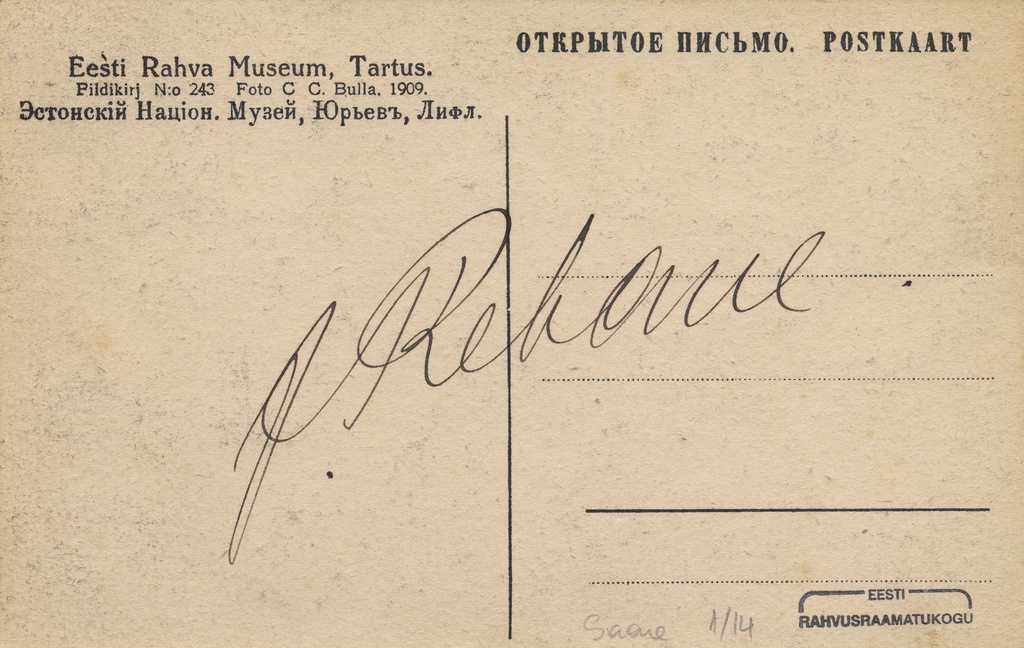 ОТКРЫТОЕ ПИСЬМО. POSTKAART
Eesti Rahva Museum, Tartus.
Pildikirj N:o 243 Foto C C. Bulla, 1909.
Эстонскій Націон. Музей, Юрьевъ, Лифл.
Rebane
Saare 1/14
EESTI
RAHVUSRAAMATUKOGU